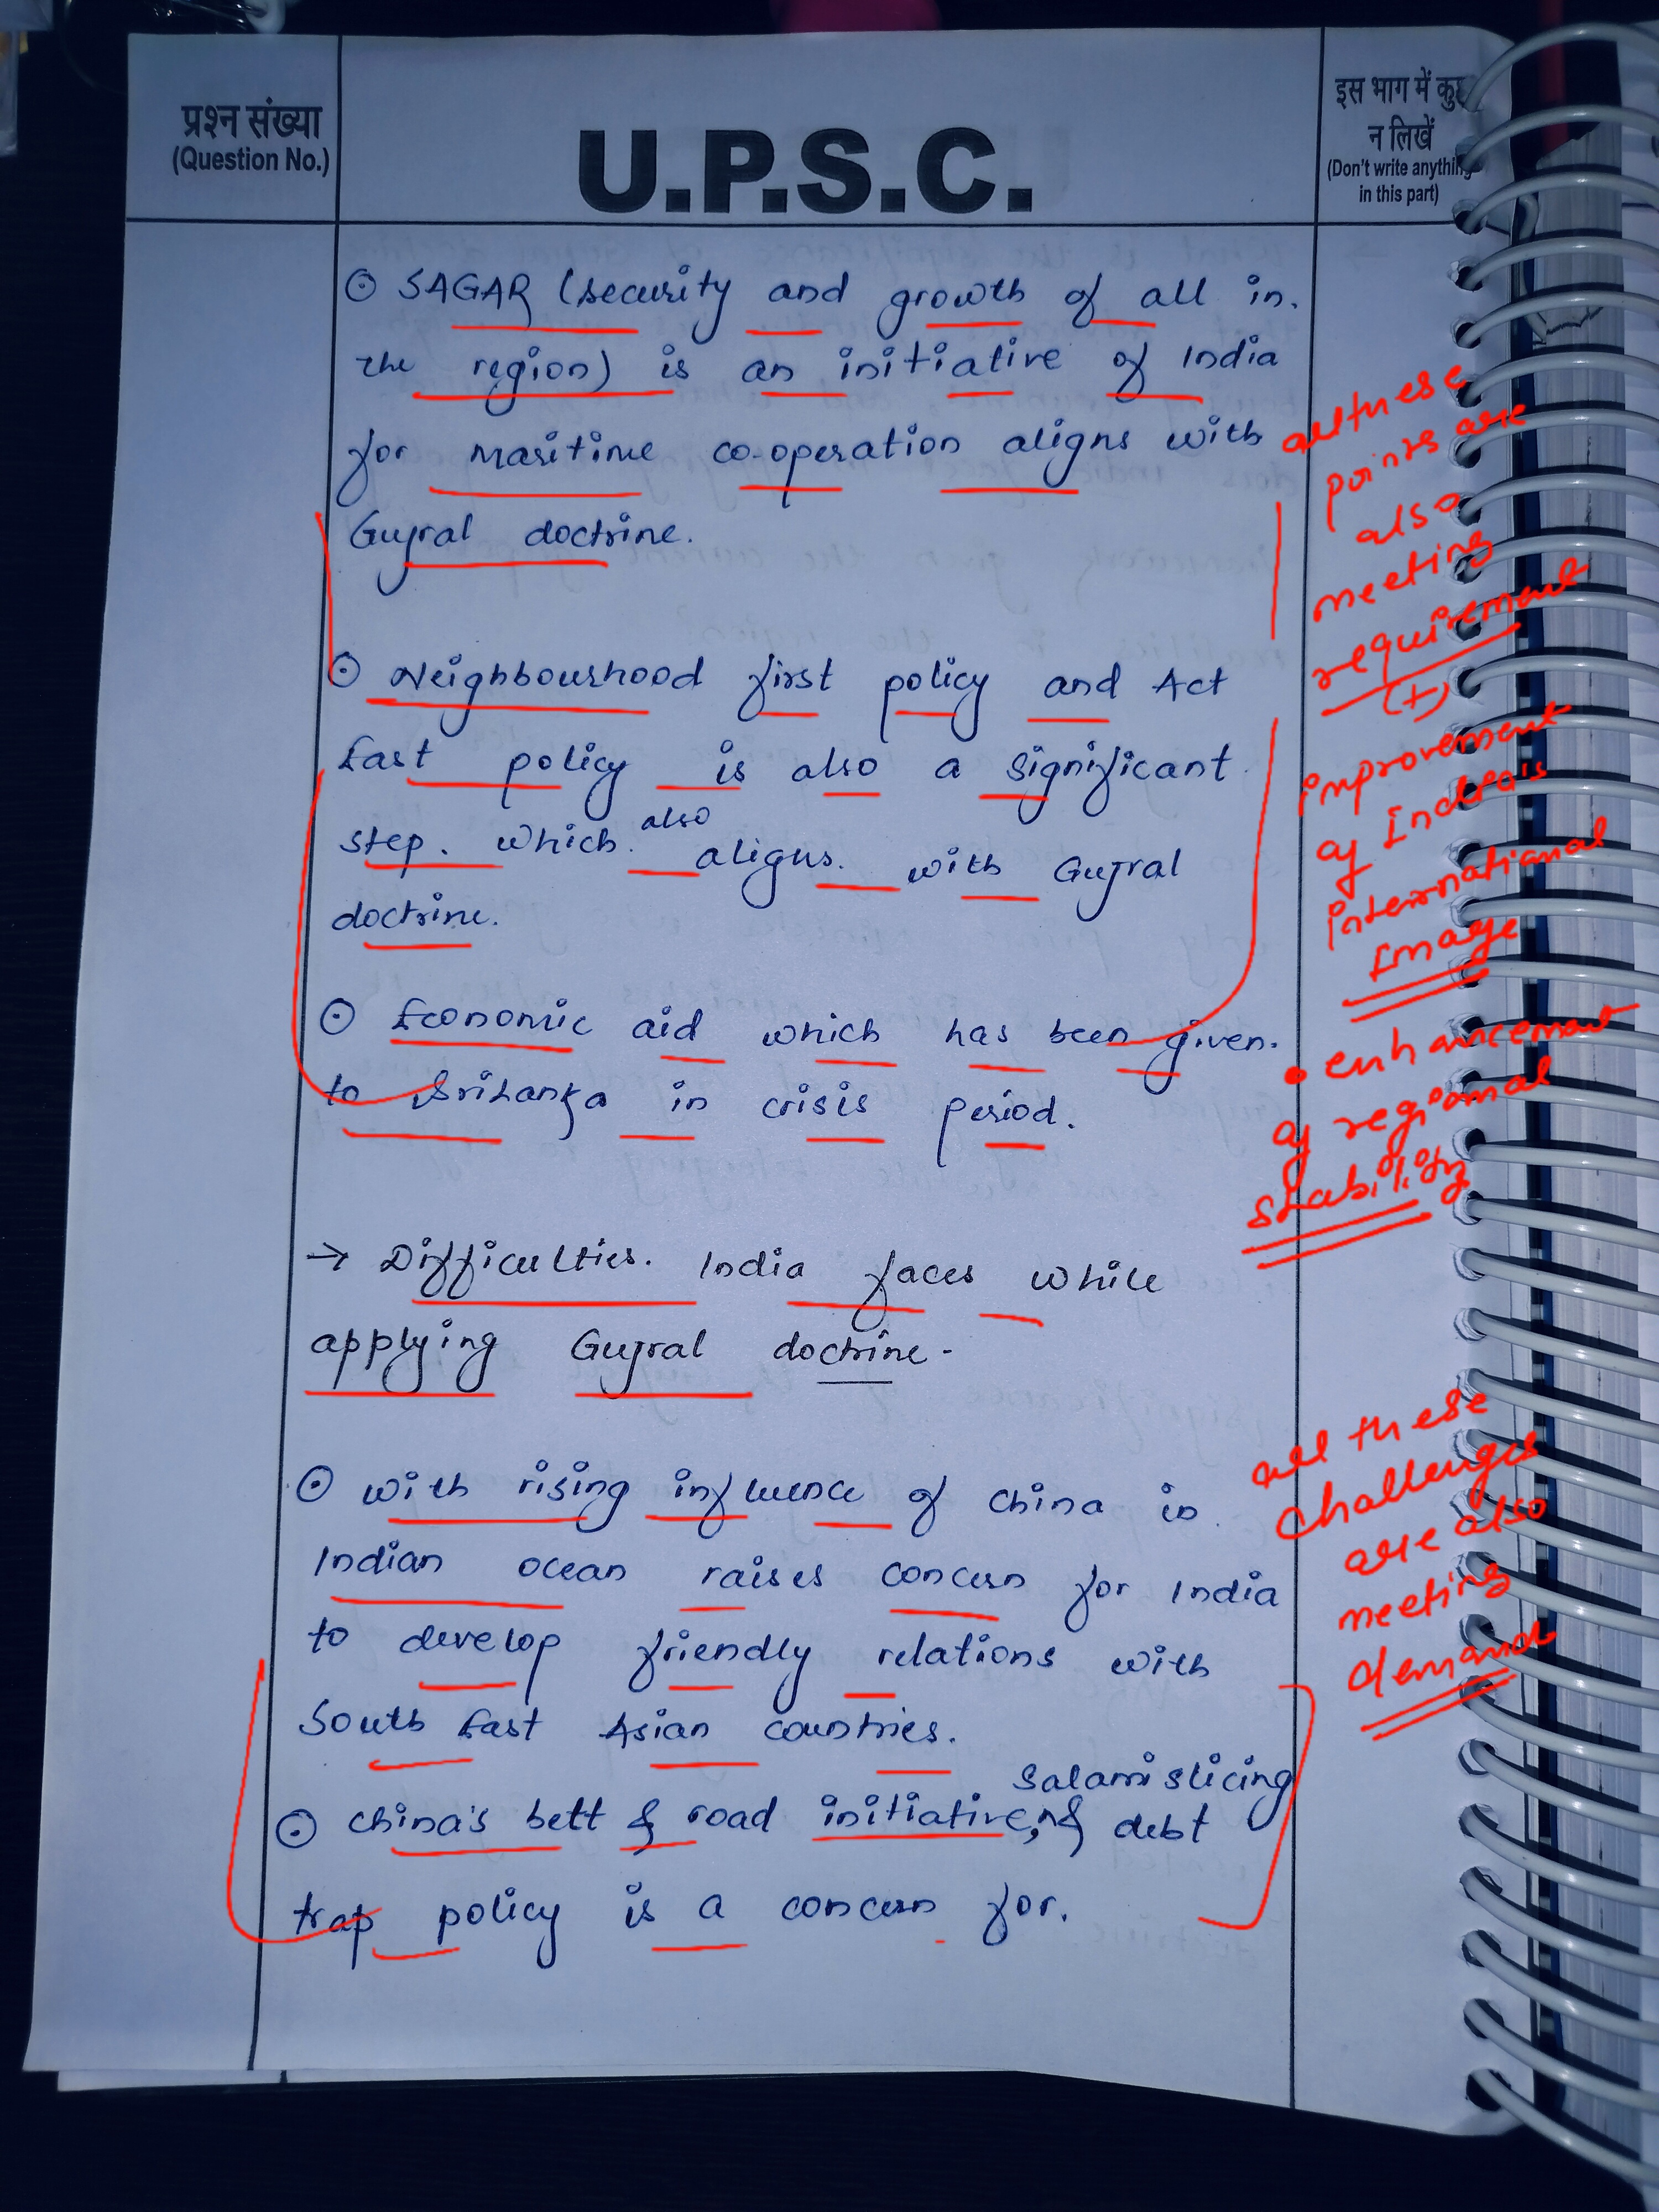 प्रश्न संख्या
(Question No.)
U.P.S.C.
इस भाग में कुछ
न लिखें
(Don't write anything
in this part)
⊙ SAGAR (security and growth of all in
the region) is an initiative of India
for maritime co-operation aligns with
Gujral doctrine.
⊙ Neighbourhood first policy and Act
East policy is also a significant
step. which also aligns. with Gujral
doctrine.
⊙ Economic aid which has been given.
to Srilanka in crisis period.
→ Difficulties. India faces while
applying Gujral doctrine -
⊙ with rising influence of China in
Indian ocean raises concern for India
to develop friendly relations with
South East Asian countries.
Salami slicing
⊙ China's belt & road initiative, & debt
trap policy is a concern for.
all these
points are
also
meeting
requirement
(+)
improvement
of India's
international
Image
• enhancement
of regional
stability
all these
challenges
are also
meeting
demand